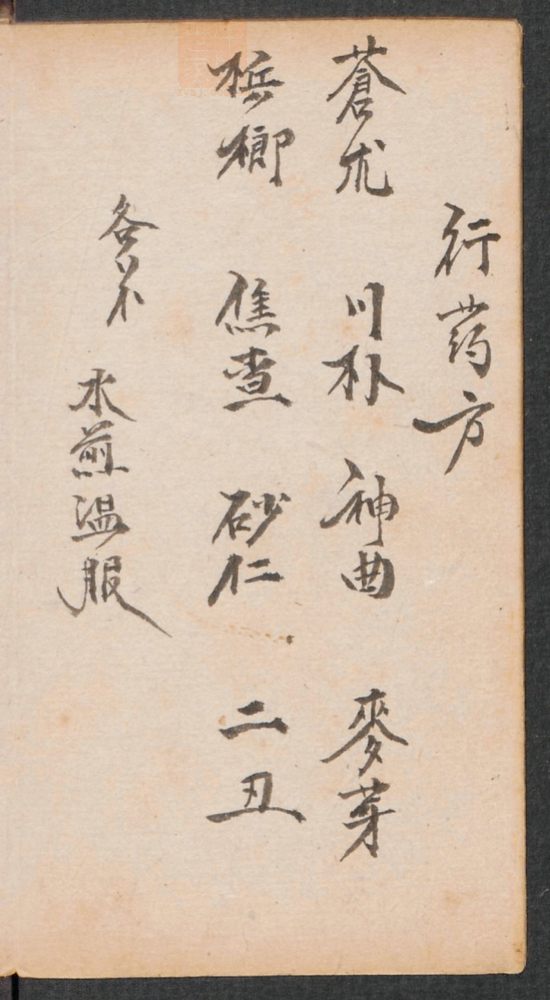 行药方
蒼朮 川朴 神曲 麥芽
槟榔 焦查 砂仁 二丑
各等 水煎温服